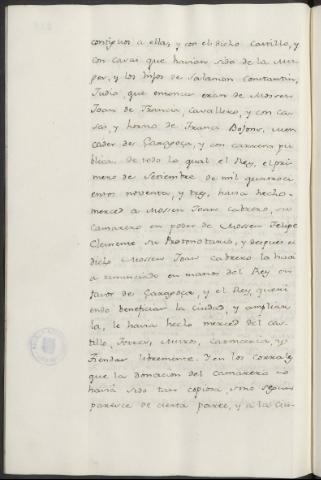 contiguos a ellas, y con el dicho Castillo, y
con casas que havian sido de la Mu-
ger, y los hijos de Salamon Constantin,
Judio, que entonces eran de Mossen
Joan de Francia, Cavallero, y con ca-
sas, y horno de Franci Bosons, mer-
cader de Zaragoça, y con carrera pu-
blica: de todo lo qual el Rey, el pri-
mero de Setiembre de mil quatroci-
entos noventa, y tres, havia hecho
merced a Mossen Joan Cabrero, su
Camarero en poder de Mossen Felipe
Clemente su Protonotario, y despues el
dicho Mossen Joan Cabrero la havia
renunciado en manos del Rey en
favor de Zaragoça, y el Rey, queri-
endo beneficiar la ciudad, y ampliar-
la, le havia hecho merced del cas-
tillo, Torres, Muros, Carniceria, y
Tiendas libremente. Y en los corrales
que la donacion del Camarero no
havia sido tan copiosa, sino segun
parece de cierta parte, y a la Ciu-